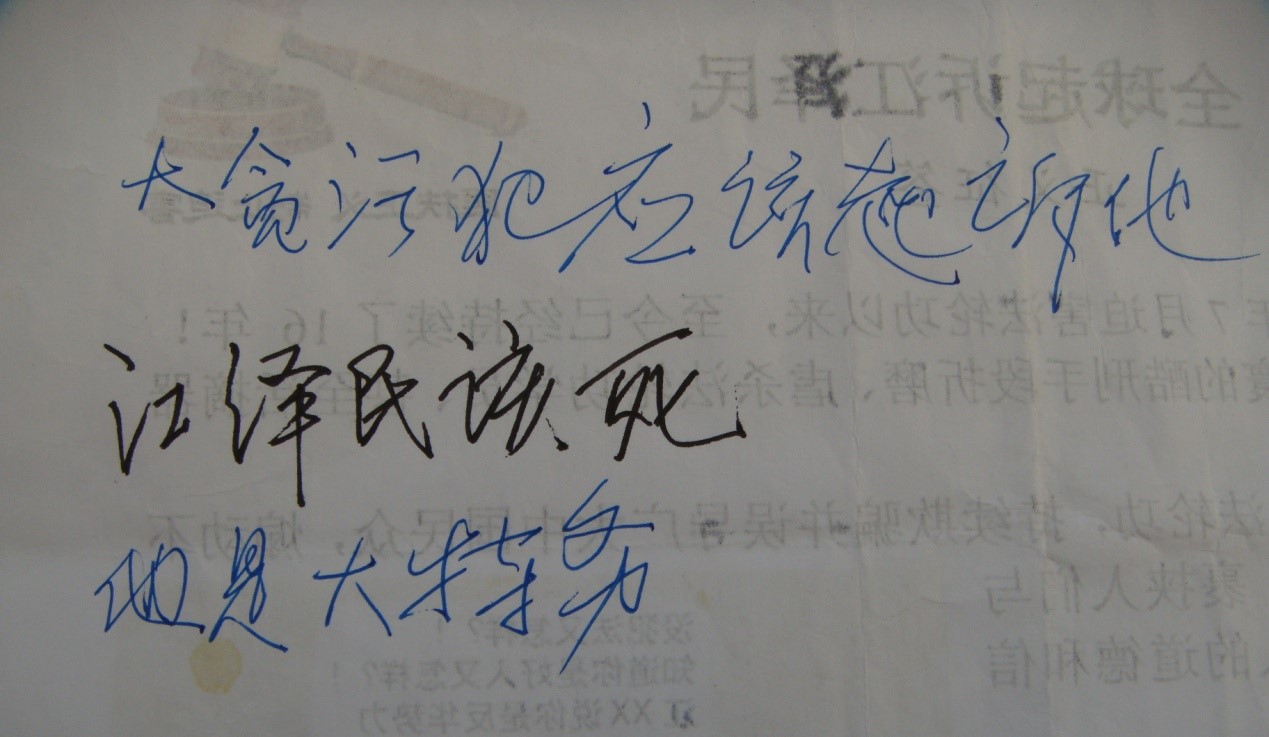 全球起诉江泽民
大贪污犯应该起诉他
年7月迫害法轮功以来，至今已经持续了 16 年！
江泽民该死
的酷刑手段折磨、虐杀法
法轮功，持续欺骗并误导广大中国民众，煽动不
他是大特务
裹挟人们与
的道德和信
没犯法又怎样？！
知道你是好人又怎样？！
江 XX 说你是反华势力